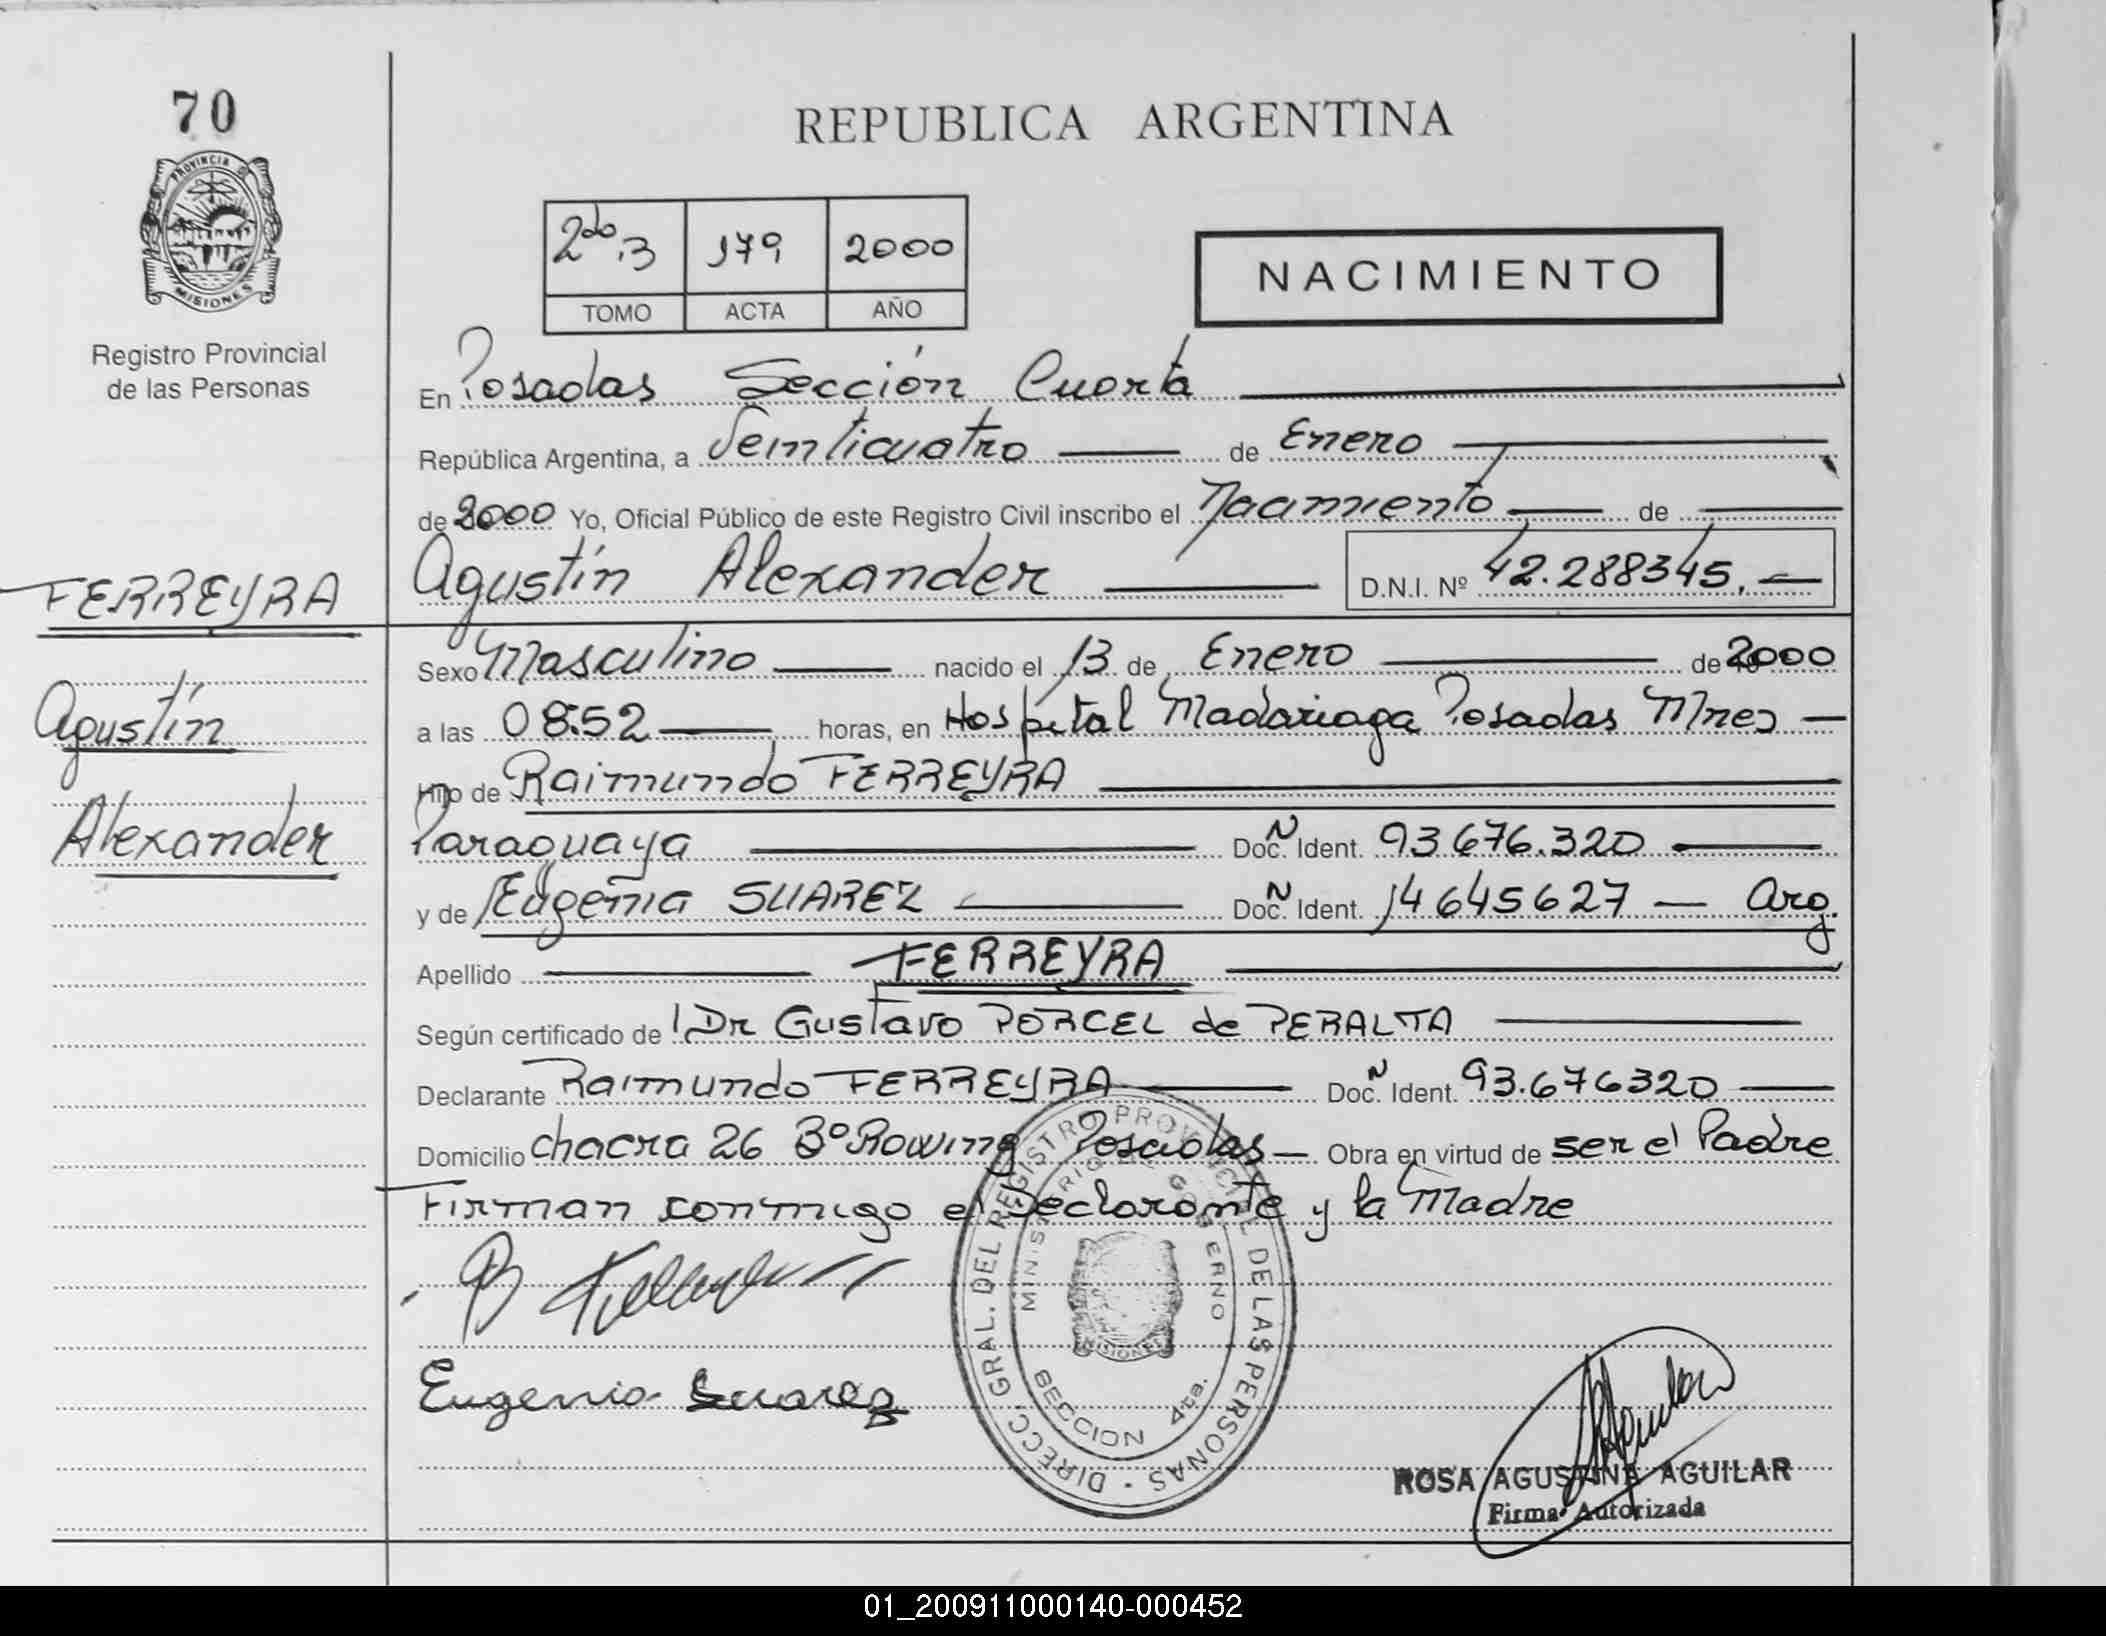 70
PROVINCIA D
MISIONES
Registro Provincial
de las Personas
FERREYRA
Agustín
Alexander
REPUBLICA ARGENTINA
2do.3 179 2000
TOMO ACTA AÑO
NACIMIENTO
En Posadas Sección Cuarta
República Argentina, a Veinticuatro de Enero
de 2000 Yo, Oficial Público de este Registro Civil inscribo el Nacimiento de
Agustín Alexander D.N.I. Nº 42.288345,
Sexo Masculino nacido el 13 de Enero de 2000
a las 08:52 horas, en Hospital Madariaga Posadas Mnes
Hijo de Raimundo FERREYRA
Paraguaya Doc. N Ident. 93.676.320
y de Eugenia SUAREZ Doc. N Ident. 14645627 Arg.
Apellido FERREYRA
Según certificado de Dr Gustavo PORCEL de PERALTA
Declarante Raimundo FERREYRA Doc. N Ident. 93.676320
Domicilio chacra 26 Bº Rowing Posadas Obra en virtud de ser el Padre
Firman conmigo el Declarante y la Madre
Eugenia Suarez
DIRECC. GRAL. DEL REGISTRO PROVINCIAL DE LAS PERSONAS
MINISTERIO DE GOBIERNO
MISIONES
SECCION 4ta.
ROSA AGUSTINA AGUILAR
Firma Autorizada
01_200911000140-000452